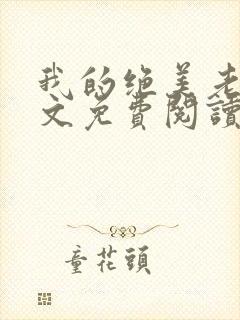 我的绝美老
文免費閱讀
童花頭